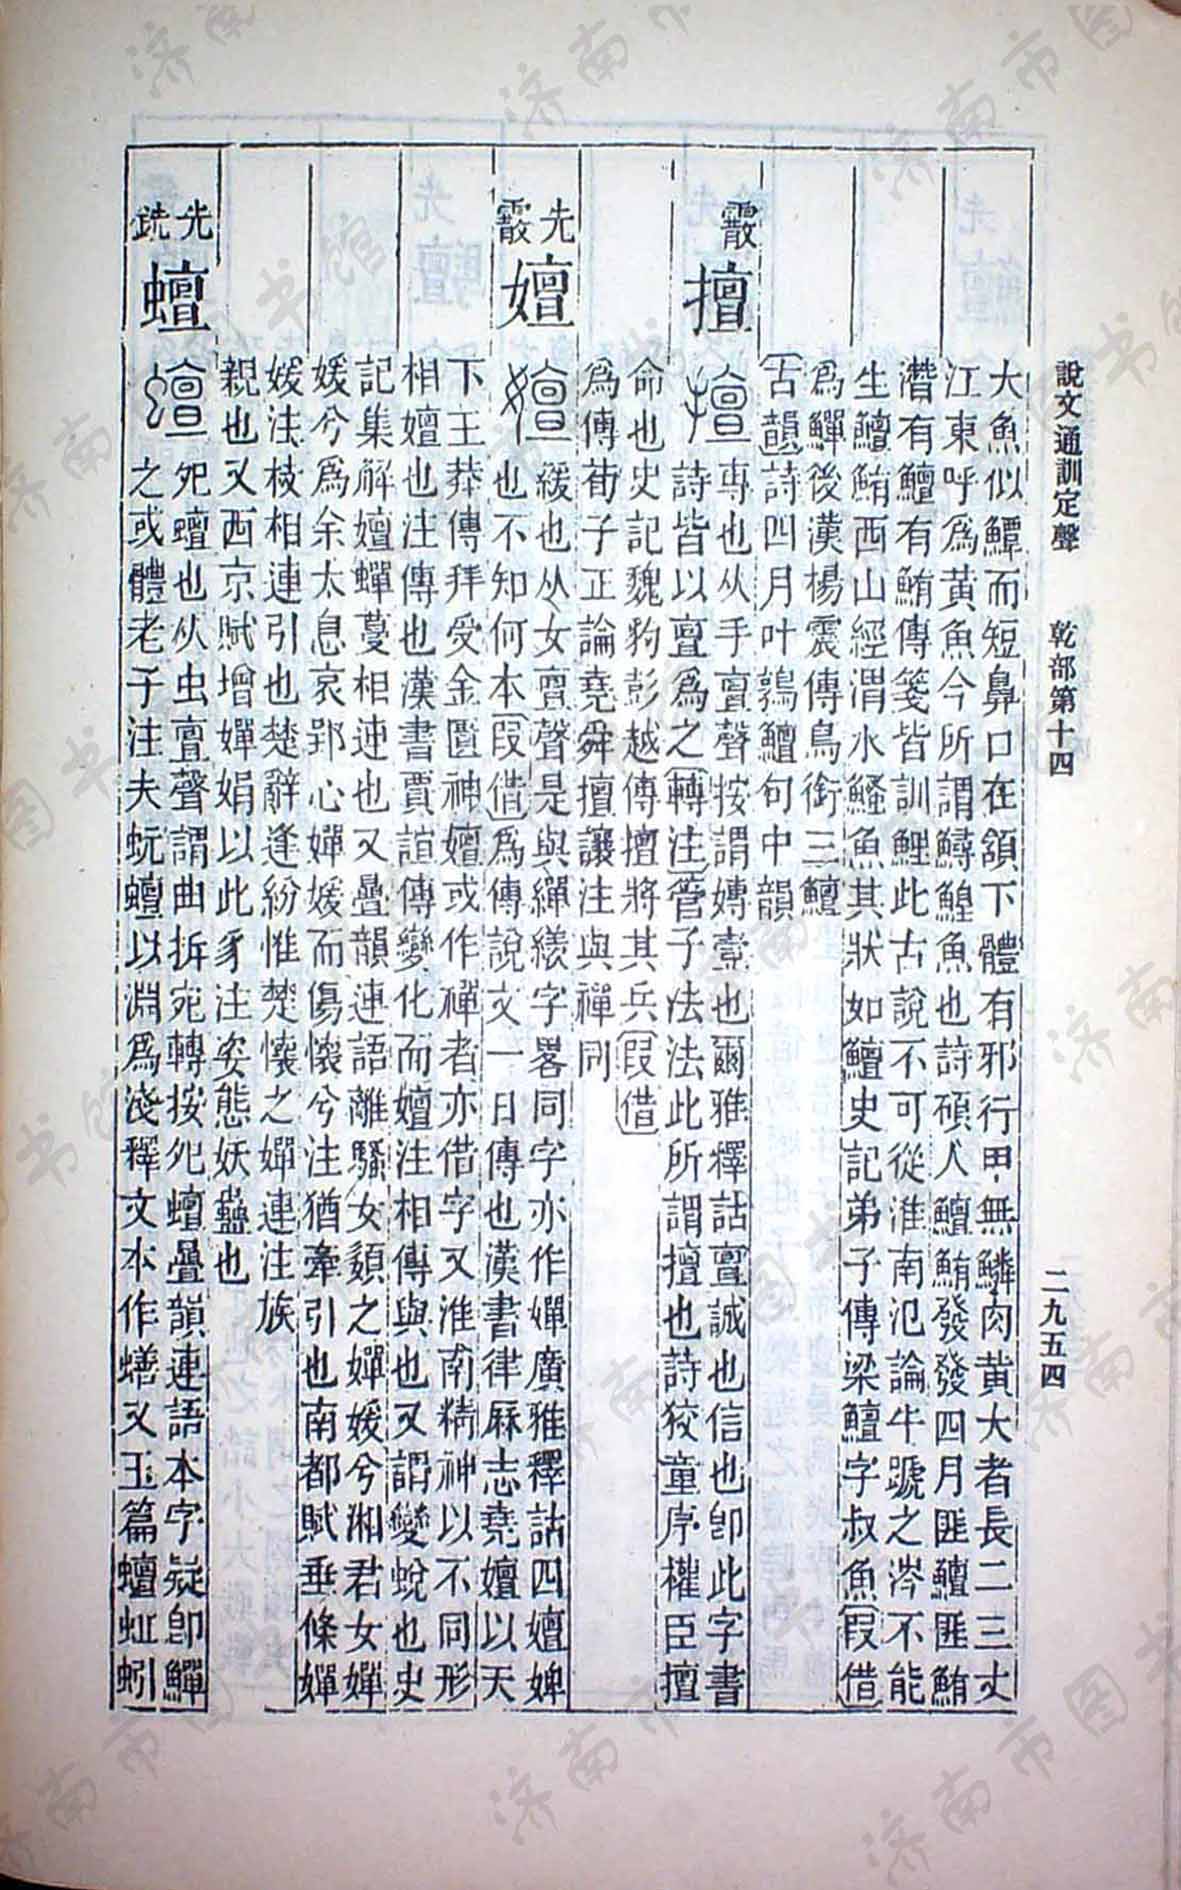 說文通訓定聲 乾部第十四 二九五四
大魚似鱏而短鼻口在頷下體有邪行甲無鱗肉黃大者長二三丈
江東呼爲黃魚今所謂鱘鰉魚也詩碩人鱣鮪發發四月匪鱣匪鮪
潛有鱣有鮪傳箋皆訓鯉此古說不可從淮南氾論牛蹏之涔不能
生鱣鮪西山經渭水鰠魚其狀如鱣史記弟子傳梁鱣字叔魚叚借
爲鱓後漢楊震傳鳥銜三鱣
古韻詩四月叶鶉鱣句中韻
霰
擅
專也从手亶聲按謂嫥壹也爾雅釋詁亶誠也信也卽此字書
詩皆以亶爲之轉注管子法法此所謂擅也詩狡童序權臣擅
命也史記魏豹彭越傳擅將其兵叚借
爲傳荀子正論堯舜擅讓注與禪同
先霰
嬗
緩也从女亶聲是與繟繎字畧同字亦作嬋廣雅釋詁四嬗婢
也不知何本叚借爲傳說文一曰傳也漢書律厤志堯嬗以天
下王莽傳拜受金匱神嬗或作禪者亦借字又淮南精神以不同形
相嬗也注傳也漢書賈誼傳變化而嬗注相傳與也又謂變蛻也史
記集解嬗蟬蔓相連也又疊韻連語離騷女嬃之嬋媛兮湘君女嬋
媛兮爲余太息哀郢心嬋媛而傷懷兮注猶牽引也南都賦垂條嬋
媛注枝相連引也楚辭逢紛惟楚懷之嬋連注族
親也又西京賦增嬋娟以此豸注姿態妖蠱也
先銑
蟺
夗蟺也从虫亶聲謂曲折宛轉按夗蟺疊韻連語本字疑卽鱓
之或體老子注夫蚖蟺以淵爲淺釋文本作蟮又玉篇蟺䖤蚓